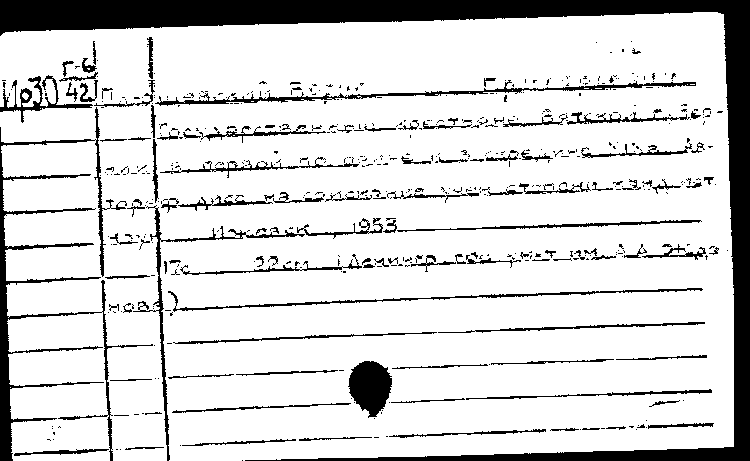 Г-6
Ир30 42
Борис Григорьевич
Государственные крестьяне Вятской губер-
нии в первой половине и в середине XIXв. Ав-
тореф. дисс. на соискание учен. степени канд. ист.
наук. Ижевск, 1953
17с. 22см. (Ленингр. гос. ун-т им. А.А. Жда-
нова)